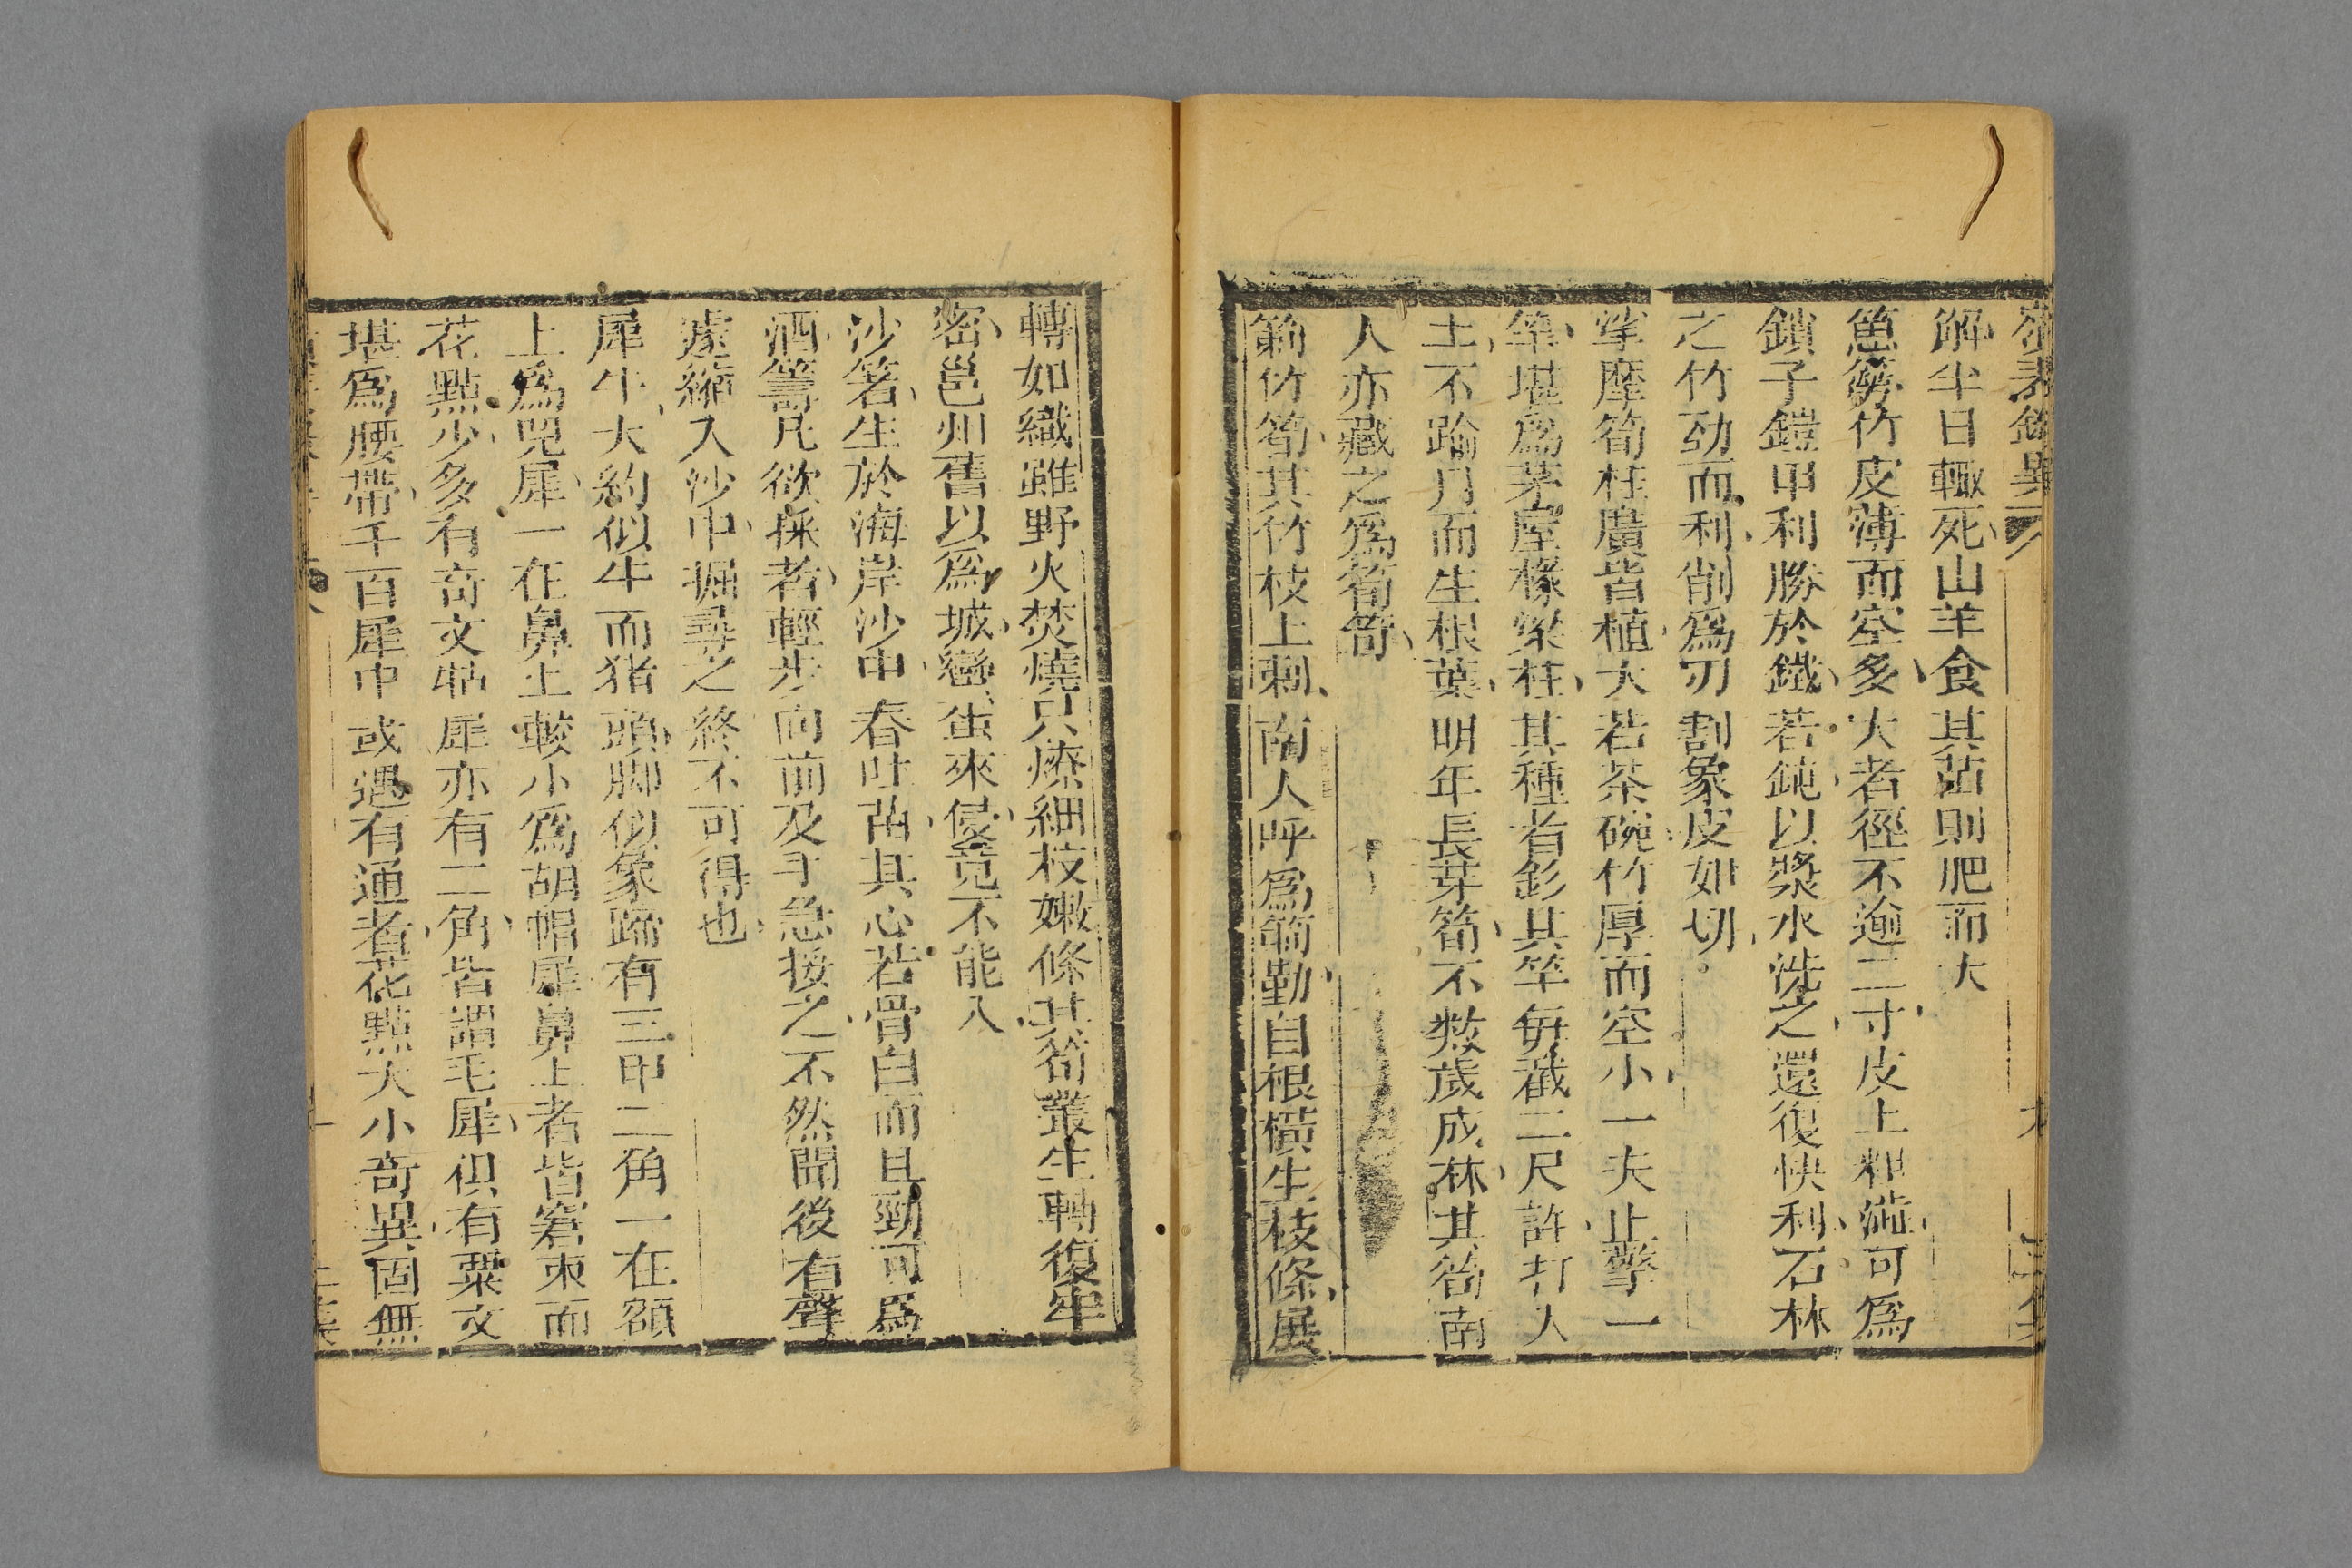 嶺表錄異
解半日輒死山羊食其苗則肥而大
䈽簩竹皮薄而空多大者徑不逾二寸皮上粗澁可爲
鎖子鎧甲利勝於鐵若鈍以漿水洗之還復快利石林
之竹勁而利削爲刀割象皮如切
挲摩筍桂廣皆植大若茶碗竹厚而空小一夫止擎一
竿堪爲茅屋椽梁柱其種者釤其竿每截二尺許打入
土不踰月而生根葉明年長芽筍不數歲成林其筍南
人亦藏之爲筍笴
簕竹筍其竹枝上刺南人呼爲簕勤自根橫生枝條展
轉如織雖野火焚燒只燎細枝嫩條其筍叢生轉復牢
密邕州舊以爲城蠻蜑來侵竟不能入
沙箸生於海岸沙中春吐苗其心若骨白而且勁可爲
酒籌凡欲採者輕步向前及手急接之不然聞後有聲
遽縮入沙中掘尋之終不可得也
犀牛大約似牛而猪頭脚似象蹄有三甲二角一在額
上爲兕犀一在鼻上較小爲胡帽犀鼻上者皆窘束而
花點少多有奇文牯犀亦有二角皆謂毛犀俱有粟文
堪爲腰帶千百犀中或遇有通者花點大小奇異固無